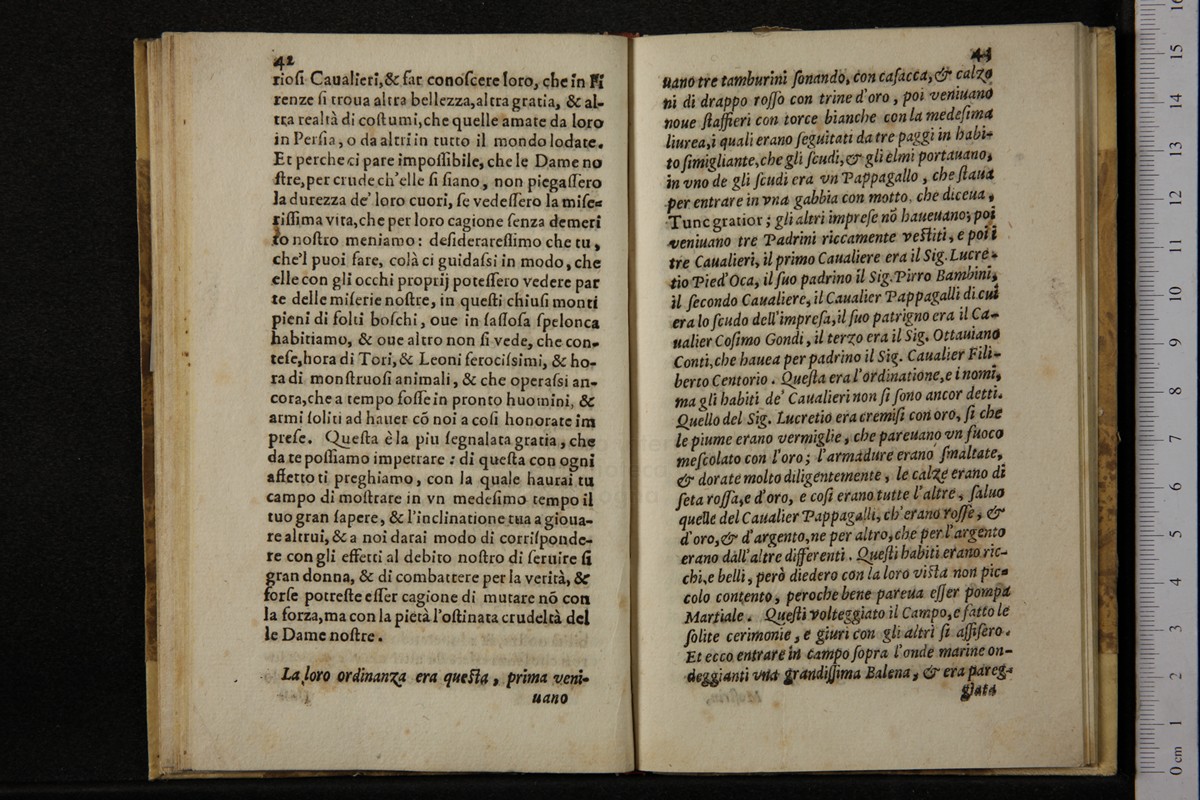 42
rioſi Caualieri,& far conoſcere loro, che in Fi
renze ſi troua altra bellezza,altra gratia, & al-
tra realtà di coſtumi,che quelle amate da loro
in Perſia, o da altri in tutto il mondo lodate.
Et perche ci pare impoſſibile, che le Dame no
ſtre,per crude ch'elle ſi ſiano, non piegaſſero
la durezza de' loro cuori, ſe vedeſſero la miſe-
riſſima vita,che per loro cagione ſenza demeri
to noſtro meniamo: deſiderareſſimo che tu,
che'l puoi fare, colà ci guidaſsi in modo, che
elle con gli occhi proprij poteſſero vedere par
te delle miſerie noſtre, in queſti chiuſi monti
pieni di folti boſchi, oue in ſaſſoſa ſpelonca
habitiamo, & oue altro non ſi vede, che con-
teſe,hora di Tori,& Leoni ferociſsimi, & ho-
ra di monſtruoſi animali, & che operaſsi an-
cora,che a tempo foſſe in pronto huomini, &
armi ſoliti ad hauer cõ noi a coſi honorate im
preſe. Queſta è la piu ſegnalata gratia, che
da te poſſiamo impetrare : di queſta con ogni
affetto ti preghiamo, con la quale haurai tu
campo di moſtrare in vn medeſimo tempo il
tuo gran ſapere, & l'inclinatione tua a gioua-
re altrui, & a noi darai modo di corriſponde-
re con gli effetti al debito noſtro di ſeruire ſi
gran donna, & di combattere per la verità, &
forſe potreſte eſſer cagione di mutare nõ con
la forza,ma con la pietà l'oſtinata crudeltà del
le Dame noſtre.
La loro ordinanza era queſta, prima veni-
uano
43
uano tre tamburini ſonando, con caſacca, & calzo
ni di drappo roſſo con trine d'oro, poi veniuano
noue ſtaffieri con torce bianche con la medeſima
liurea,i quali erano ſeguitati da tre paggi in habi-
to ſimigliante,che gli ſcudi,& gli elmi portauano,
in vno de gli ſcudi era vn Pappagallo, che ſtaua
per entrare in vna gabbia con motto, che diceua,
Tunc gratior; gli altri impreſe nõ haueuano; poi
veniuano tre Padrini riccamente veſtiti, e poi i
tre Caualieri, il primo Caualiere era il Sig. Lucre-
tio Pied'Oca, il ſuo padrino il Sig. Pirro Bambini,
il ſecondo Caualiere, il Caualier Pappagalli di cui
era lo ſcudo dell'impreſa,il ſuo patrigno era il Ca-
ualier Coſimo Gondi, il terzo era il Sig. Ottauiano
Conti,che hauea per padrino il Sig. Caualier Fili-
berto Centorio. Queſta era l'ordinatione,e i nomi,
ma gli habiti de' Caualieri non ſi ſono ancor detti.
Quello del Sig. Lucretio era cremiſi con oro, ſi che
le piume erano vermiglie, che pareuano vn fuoco
meſcolato con l'oro; l'armadure erano ſmaltate,
& dorate molto diligentemente, le calze erano di
ſeta roſſa,e d'oro, e coſi erano tutte l'altre, ſaluo
quelle del Caualier Pappagalli, ch'erano roſſe, &
d'oro,& d'argento,ne per altro,che per l'argento
erano dall'altre differenti. Queſti habiti erano ric-
chi,e belli, però diedero con la loro viſta non pic-
colo contento, peroche bene pareua eſſer pompa
Martiale. Queſti volteggiato il Campo,e fatto le
ſolite cerimonie, e giuri con gli altri ſi aſſiſero.
Et ecco entrare in campo ſopra l'onde marine on-
deggianti vna grandiſſima Balena, & era pareg-
giata